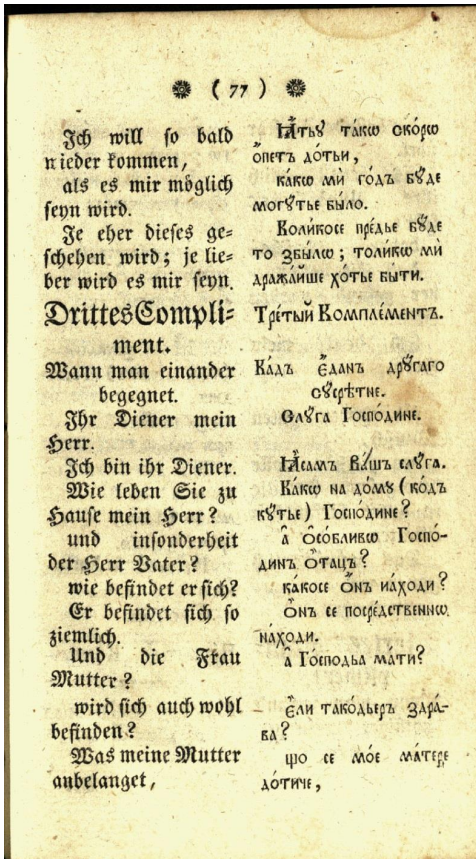 ( 77 )
Ich will so bald
nieder kommen,
als es mir möglich
seyn wird.
Je eher dieses ge-
schehen wird; je lie-
ber wird es mir seyn.
Drittes Compli-
ment.
Wann man einander
begegnet.
Ihr Diener mein
Herr.
Ich bin ihr Diener.
Wie leben Sie zu
Hause mein Herr?
und insonderheit
der Herr Vater?
wie befindet er sich?
Er befindet sich so
ziemlich.
Und die Frau
Mutter?
wird sich auch wohl
befinden?
Was meine Mutter
anbelanget,
Ꙗ҆тьу та́кѡ ско́рѡ
ѻ҆петъ до́тьи,
ка́кѡ мѝ го́дъ бꙋ́де
могꙋтье бы́ло.
Коли́косе пре́дье бꙋ́де
то збы́лѡ; толи́кѡ мѝ
дража́йше хо́тье быти.
Тре́тый Комплеме́нтъ.
Ка́дъ є҆да́нъ дрꙋ́гаго
сꙋсрѣ́тне.
Слꙋ́га Госпо́дине.
Ꙗ҆самъ ва́шъ слꙋ́га.
Ка́кѡ на до́мꙋ (ко́дъ
кꙋ́тье) Госпо́дине?
а҆̀ ѻ҆со́бливѡ Госпо́-
динъ ѻ҆та́цъ?
ка́косе ѻ҆́нъ наа́ходи?
ѻ҆́нъ се посре́дственнѡ
на́ходи.
а҆̀ Го́сподьа ма́ти?
є҆́ли тако́дьеръ здра́-
ва?
що се мо́е ма́тере
до́тиче,